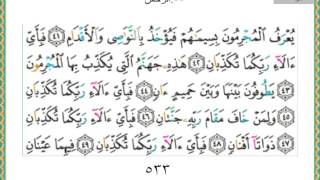 الرحمن
يُعْرَفُ الْمُجْرِمُونَ بِسِيمَاهُمْ فَيُؤْخَذُ بِالنَّوَاصِي وَالْأَقْدَامِ ٤١ فَبِأَيِّ
آلَاءِ رَبِّكُمَا تُكَذِّبَانِ ٤٢ هَٰذِهِ جَهَنَّمُ الَّتِي يُكَذِّبُ بِهَا الْمُجْرِمُونَ
٤٣ يَطُوفُونَ بَيْنَهَا وَبَيْنَ حَمِيمٍ آنٍ ٤٤ فَبِأَيِّ آلَاءِ رَبِّكُمَا تُكَذِّبَانِ
٤٥ وَلِمَنْ خَافَ مَقَامَ رَبِّهِ جَنَّتَانِ ٤٦ فَبِأَيِّ آلَاءِ رَبِّكُمَا تُكَذِّبَانِ
٤٧ ذَوَاتَا أَفْنَانٍ ٤٨ فَبِأَيِّ آلَاءِ رَبِّكُمَا تُكَذِّبَانِ ٤٩ فِيهِمَا عَيْنَانِ
٥٣٣